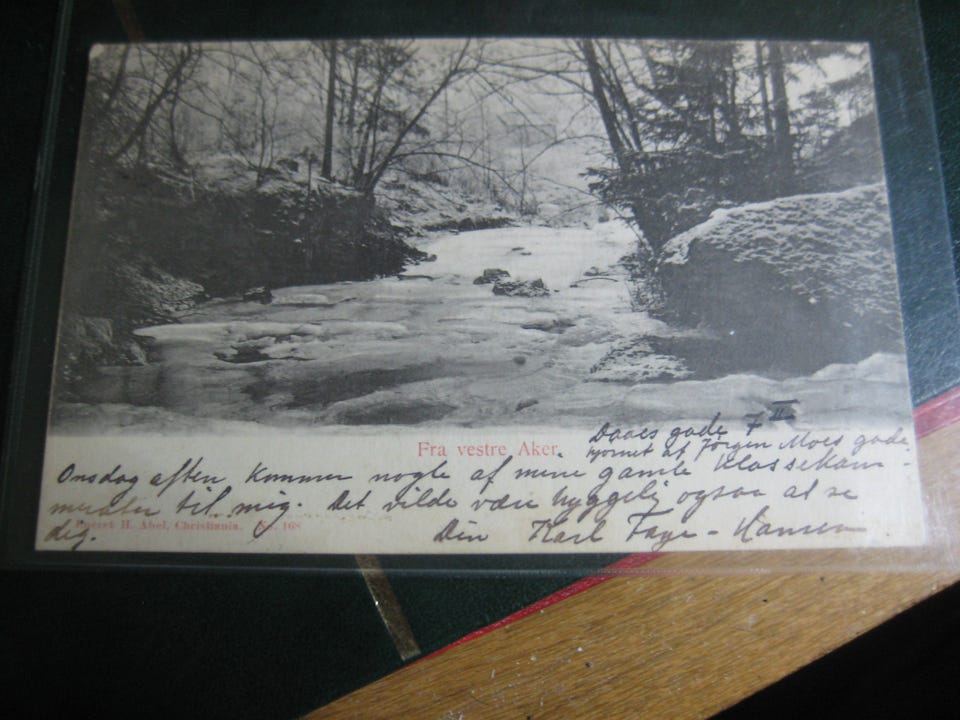 Fra vestre Aker.
Daaes gade 7 II
hjørnet af Jørgen Moes gade.
Onsdag aften kommer nogle af mine gamle klassekam-
merater til mig. Det vilde være hyggelig ogsaa at se
dig. Din Karl Faye-Hansen
Eneret H. Abel, Christiania. No. 168